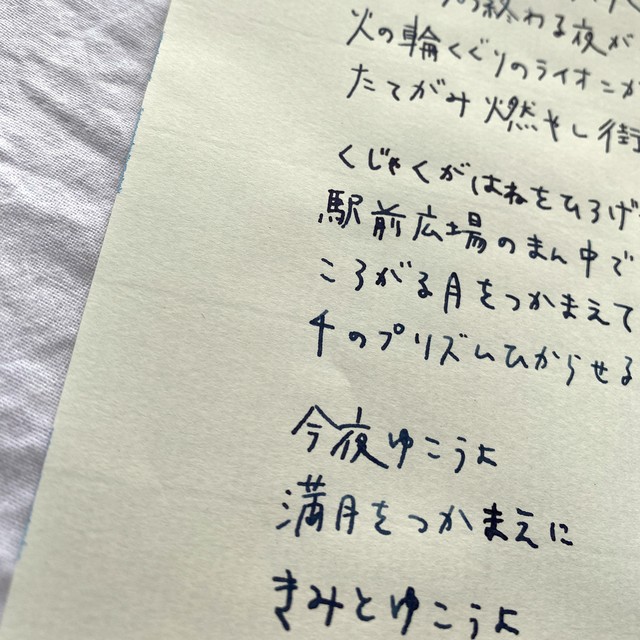 終わる夜が
火の輪くぐりのライオンが
たてがみ燃やし街
くじゃくがはねをひろげ
駅前広場のまん中で
ころがる月をつかまえて
千のプリズムひからせる
今夜ゆこうよ
満月をつかまえに
きみとゆこうよ